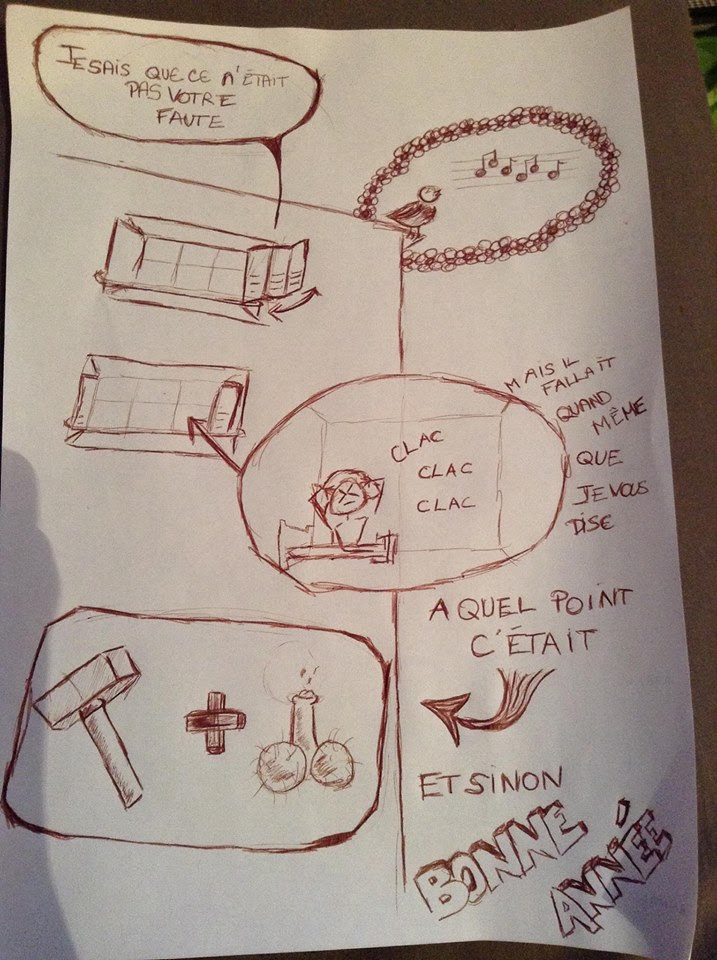 JE SAIS QUE CE N'ÉTAIT
PAS VOTRE
FAUTE
CLAC
CLAC
CLAC
MAIS IL
FALLAIT
QUAND
MÊME
QUE
JE VOUS
DISE
A QUEL POINT
C'ÉTAIT
ET SINON
BONNE
ANNÉE